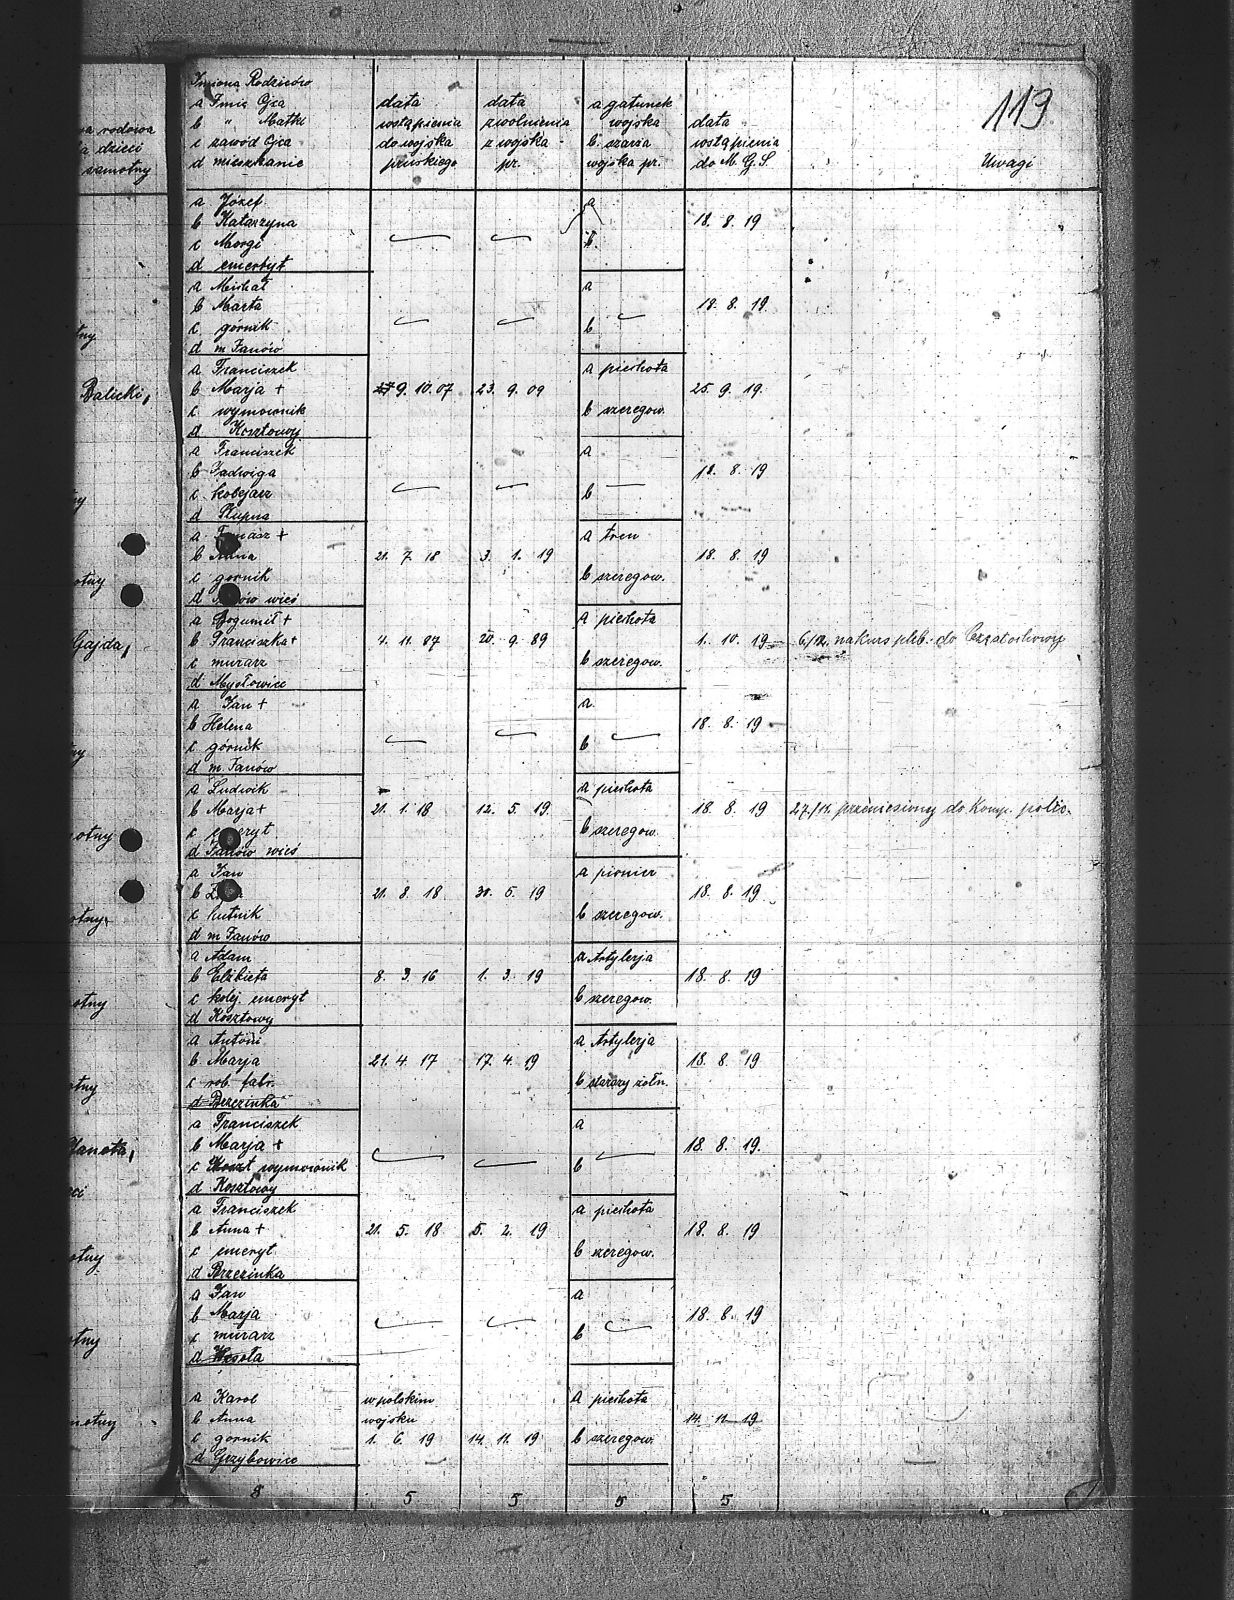 113
Imiona Rodziców
a Imię Ojca
b " Matki
c zawód Ojca
d mieszkanie
data
wstąpienia
do wojska
pruskiego
data
zwolnienia
z wojska
pr.
a gatunek
wojska
b. szarża
wojska pr.
data
wstąpienia
do M. G. S.
Uwagi
a rodowa
dzieci
samotny
a Józef
b Katarzyna
c
d emeryt
a
b.
18. 8. 19
a Michał
b Marta
c górnik
d m. Janów
a
b
18. 8. 19
a Franciszek
b Marja +
c wymownik
d Kosztowy
9. 10. 07
23. 9. 09
a piechota
b szeregow.
25. 9. 19.
Balicki,
a Franciszek
b Jadwiga
c kolejarz
d Słupna
a
b
18. 8. 19
a Tomasz +
b Anna
c gornik
d Janów wieś
21. 7. 18
3. 1. 19
a tren
b szeregow.
18. 8. 19
otny
a Bogumił +
b Franciszka +
c murarz
d Mysłowice
4. 11. 07
20. 9. 09
a piechota
b szeregow.
1. 10. 19
6./12. na kurs pleb. do Częstochowy
Gajda,
a Jan +
b Helena
c górnik
d m. Janów
a
b
18. 8. 19
a Ludwik
b Marja +
c emeryt
d Janów wieś
21. 1. 18
12. 5. 19.
a piechota
b szeregow.
18. 8. 19
27./11. przeniesiony do Komp. polic.
otny
a Jan
b
c hutnik
d m Janów
21. 8. 18
30. 5. 19
a pionier
b szeregow.
18. 8. 19
otny.
a Adam
b Elżbieta
c kolej. emeryt
d Kosztowy
8. 3. 16
1. 3. 19
a Artylerja
b szeregow.
18. 8. 19
otny
a Antoni
b Marja
c rob. fabr.
d Brzezinka
21. 4. 17
17. 4. 19
a Artylerja
b starszy żołn.
18. 8. 19
otny
a Franciszek
b Marja +
c wymownik
d Kosztowy
a
b
18. 8. 19.
a Franciszek
b Anna +
c emeryt
d Brzezinka
21. 5. 18
5. 2. 19
a piechota
b szeregow.
18. 8. 19
otny
a Jan
b Marja
c murarz
d Wesoła
a
b
18. 8. 19
otny
a Karol
b Anna
c gornik
d Grzybowice
w polskim
wojsku
1. 6. 19
14. 11. 19
a piechota
b szeregow.
14. 11. 19
otny
8 5 5 5 5